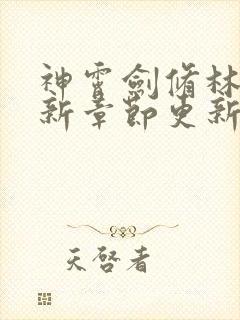 神霄劍脩林
新章節更新
天啓者